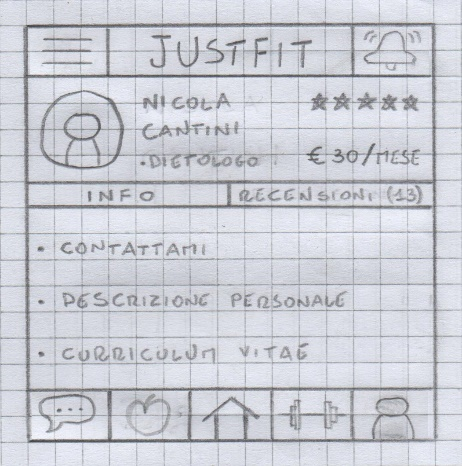 JUSTFIT
NICOLA
CANTINI
• DIETOLOGO
€ 30/MESE
INFO
RECENSIONI (13)
• CONTATTAMI
• DESCRIZIONE PERSONALE
• CURRICULUM VITAE